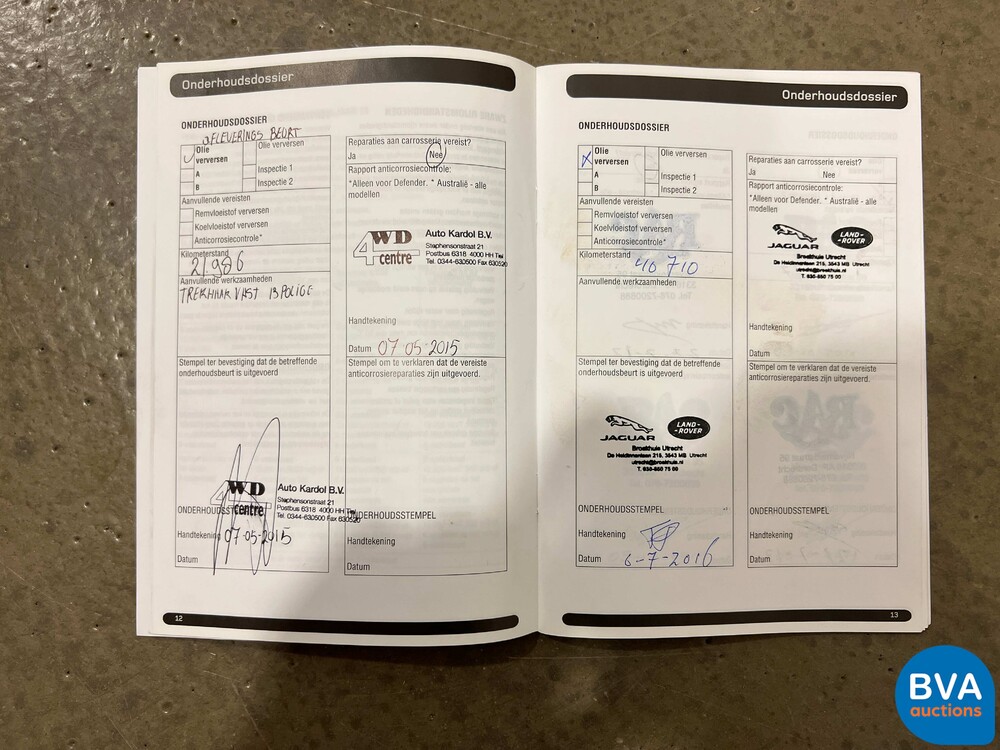 Onderhoudsdossier
ONDERHOUDSDOSSIER
AFLEVERINGS BEURT
Olie verversen
Olie verversen
A
Inspectie 1
B
Inspectie 2
Aanvullende vereisten
Remvloeistof verversen
Koelvloeistof verversen
Anticorrosiecontrole*
Kilometerstand
21986
Aanvullende werkzaamheden
TREKHAAK VAST 13 POLIGE
Stempel ter bevestiging dat de betreffende
onderhoudsbeurt is uitgevoerd
4WD centre
Auto Kardol B.V.
Stephensonstraat 21
Postbus 6318 4000 HH Tiel
Tel. 0344-630500 Fax 630520
ONDERHOUDSSTEMPEL
Handtekening
07-05-2015
Datum
Reparaties aan carrosserie vereist?
Ja
Nee
Rapport anticorrosiecontrole:
*Alleen voor Defender. * Australië - alle
modellen
4WD centre
Auto Kardol B.V.
Stephensonstraat 21
Postbus 6318 4000 HH Tiel
Tel. 0344-630500 Fax 630520
Handtekening
Datum 07-05-2015
Stempel om te verklaren dat de vereiste
anticorrosiereparaties zijn uitgevoerd.
ONDERHOUDSSTEMPEL
Handtekening
Datum
12
Onderhoudsdossier
ONDERHOUDSDOSSIER
Olie verversen
Olie verversen
A
Inspectie 1
B
Inspectie 2
Aanvullende vereisten
Remvloeistof verversen
Koelvloeistof verversen
Anticorrosiecontrole*
Kilometerstand
40710
Aanvullende werkzaamheden
Stempel ter bevestiging dat de betreffende
onderhoudsbeurt is uitgevoerd
JAGUAR
LAND-ROVER
Broekhuis Utrecht
De Heldinnenlaan 215, 3543 MB Utrecht
utrecht@broekhuis.nl
T. 030-850 75 00
ONDERHOUDSSTEMPEL
Handtekening
Datum 6-7-2016
Reparaties aan carrosserie vereist?
Ja
Nee
Rapport anticorrosiecontrole:
*Alleen voor Defender. * Australië - alle
modellen
JAGUAR
LAND-ROVER
Broekhuis Utrecht
De Heldinnenlaan 215, 3543 MB Utrecht
utrecht@broekhuis.nl
T. 030-850 75 00
Handtekening
Datum
Stempel om te verklaren dat de vereiste
anticorrosiereparaties zijn uitgevoerd.
ONDERHOUDSSTEMPEL
Handtekening
Datum
13
BVA
auctions